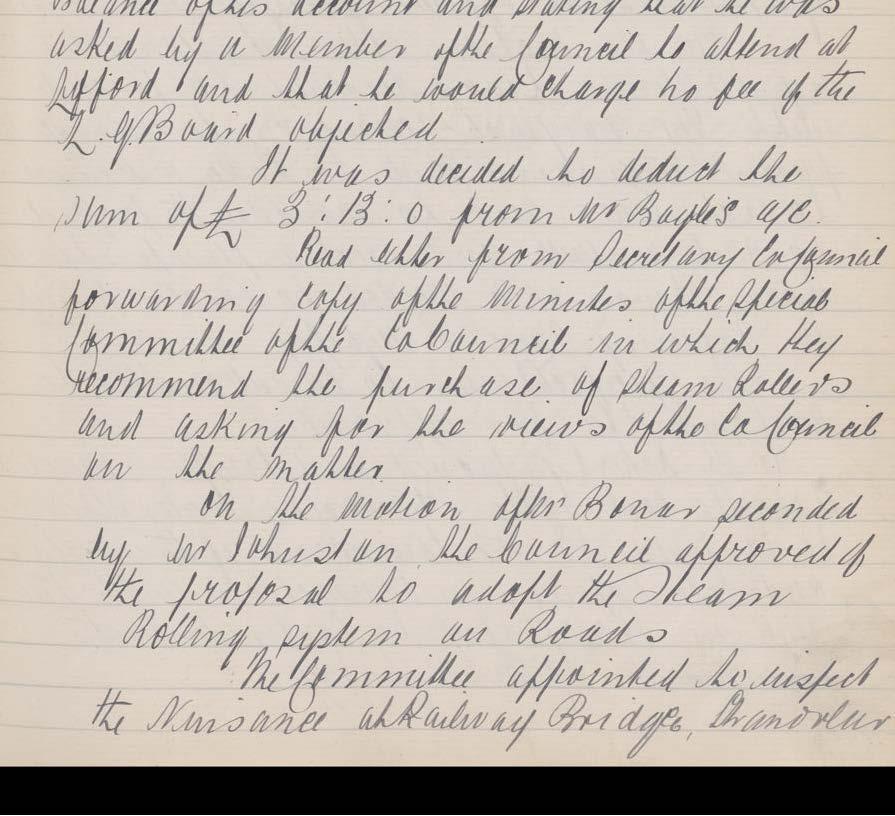 Balance of his account and stating that he was
asked by a Member of the Council to attend at
Lifford and that he would charge no fee if the
L.G.Board objected
It was decided to deduct the
sum of £ 3:13:0 from Mr Bayle's a/c.
Read letter from Secretary Co Council
forwarding copy of the Minutes of the Special
Committee of the Co Council in which they
recommend the purchase of Steam Rollers
and asking for the views of the Co Council
on the matter
On the motion of Mr Bonar seconded
by Mr Johnston the Council approved of
the proposal to adopt the Steam
Rolling system on Roads
The Committee appointed to inspect
the Nuisance at Railway Bridge, Stranorlar